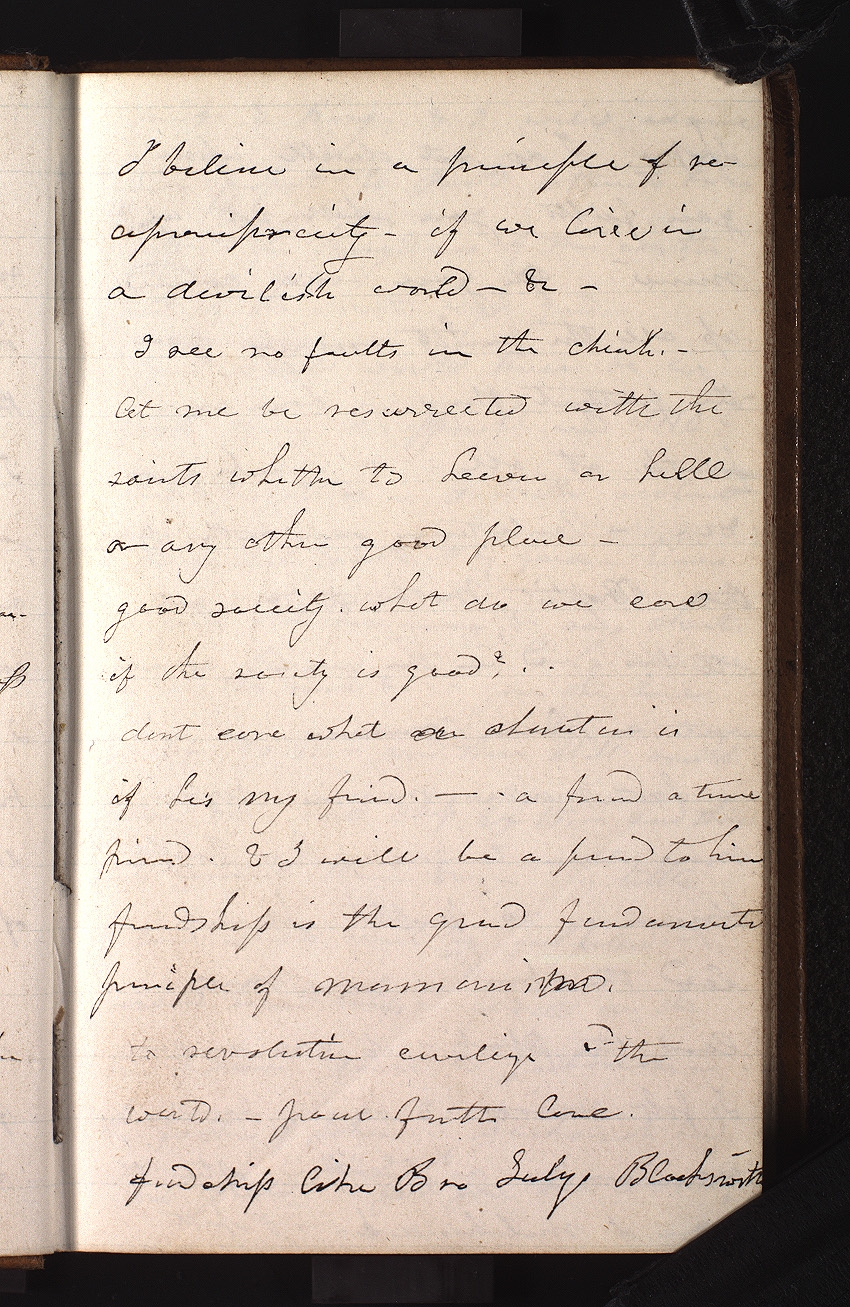 I beleive in a principle of re-
aproriprocity - if we live in
a devilish world - &c -
I see no faults in the church. -
let me be resurrected with the
saints whether to heaven or hell
or any other good place -
good society. what do we care
if the society is good? . .
dont care what a character is
if he's my friend. — - a friend a true
friend. & I will be a friend to him
friendship is the grand fundamental
principle of mormonism.
to revolution civilize the
world. - pour forth love.
friendship like Bro Turleys Blacksmith